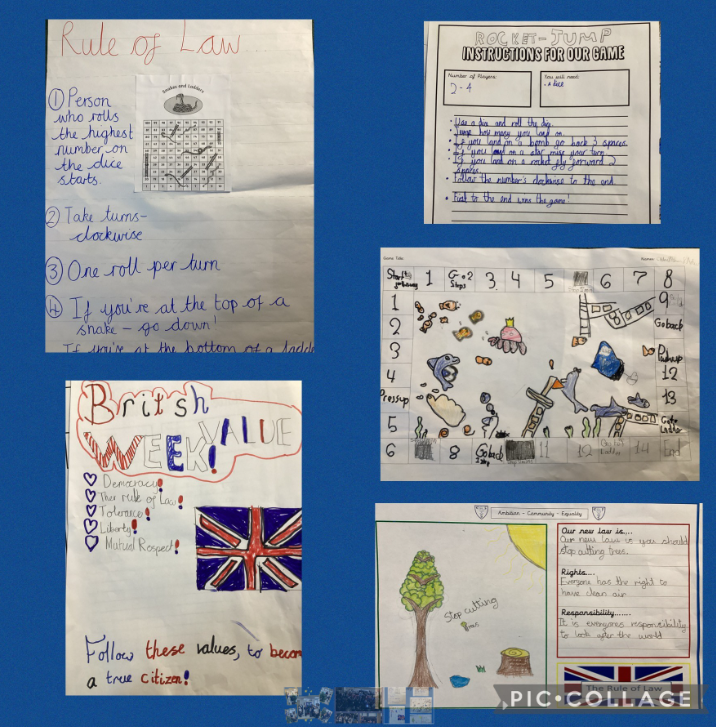 Rule of Law
Snakes and Ladders
① Person
who rolls
the highest
number on
the dice
starts.
② Take turns-
clockwise
③ One roll per turn
④ If you're at the top of a
snake - go down!
If you're at the bottom of a
ROCKET-JUMP
INSTRUCTIONS FOR OUR GAME
Number of Players:
2-4
You will need:
• A dice
• Use a dice and roll the
• Jump how many you land on.
• If you land in a bomb go back 3 spaces.
• If you land on a star miss your turn
• If you land on a rocket fly forward 2
spaces
• Follow the number's clockwise to the end
• First to the end wins the game!
Game Title:
Start 1 Go 2 Steps 3 4 5 6 7 8
1 9
2 Go back
3
4 12
Pressup 13
5
6 8 Go back 11 12 14
British
VALUE
WEEK!
Democracy!
The rule of Law!
Tolerance!
Liberty!
Mutual Respect!
Follow these values, to becom
a true citizen!
Ambition - Community - Equality
Stop cutting
trees
Our new law is....
Our new law is you should
stop cutting trees.
Rights....
Everyone has the right to
have clean air
Responsibility......
It is everyones responsibility
to look after the world
The Rule of Law
PIC•COLLAGE